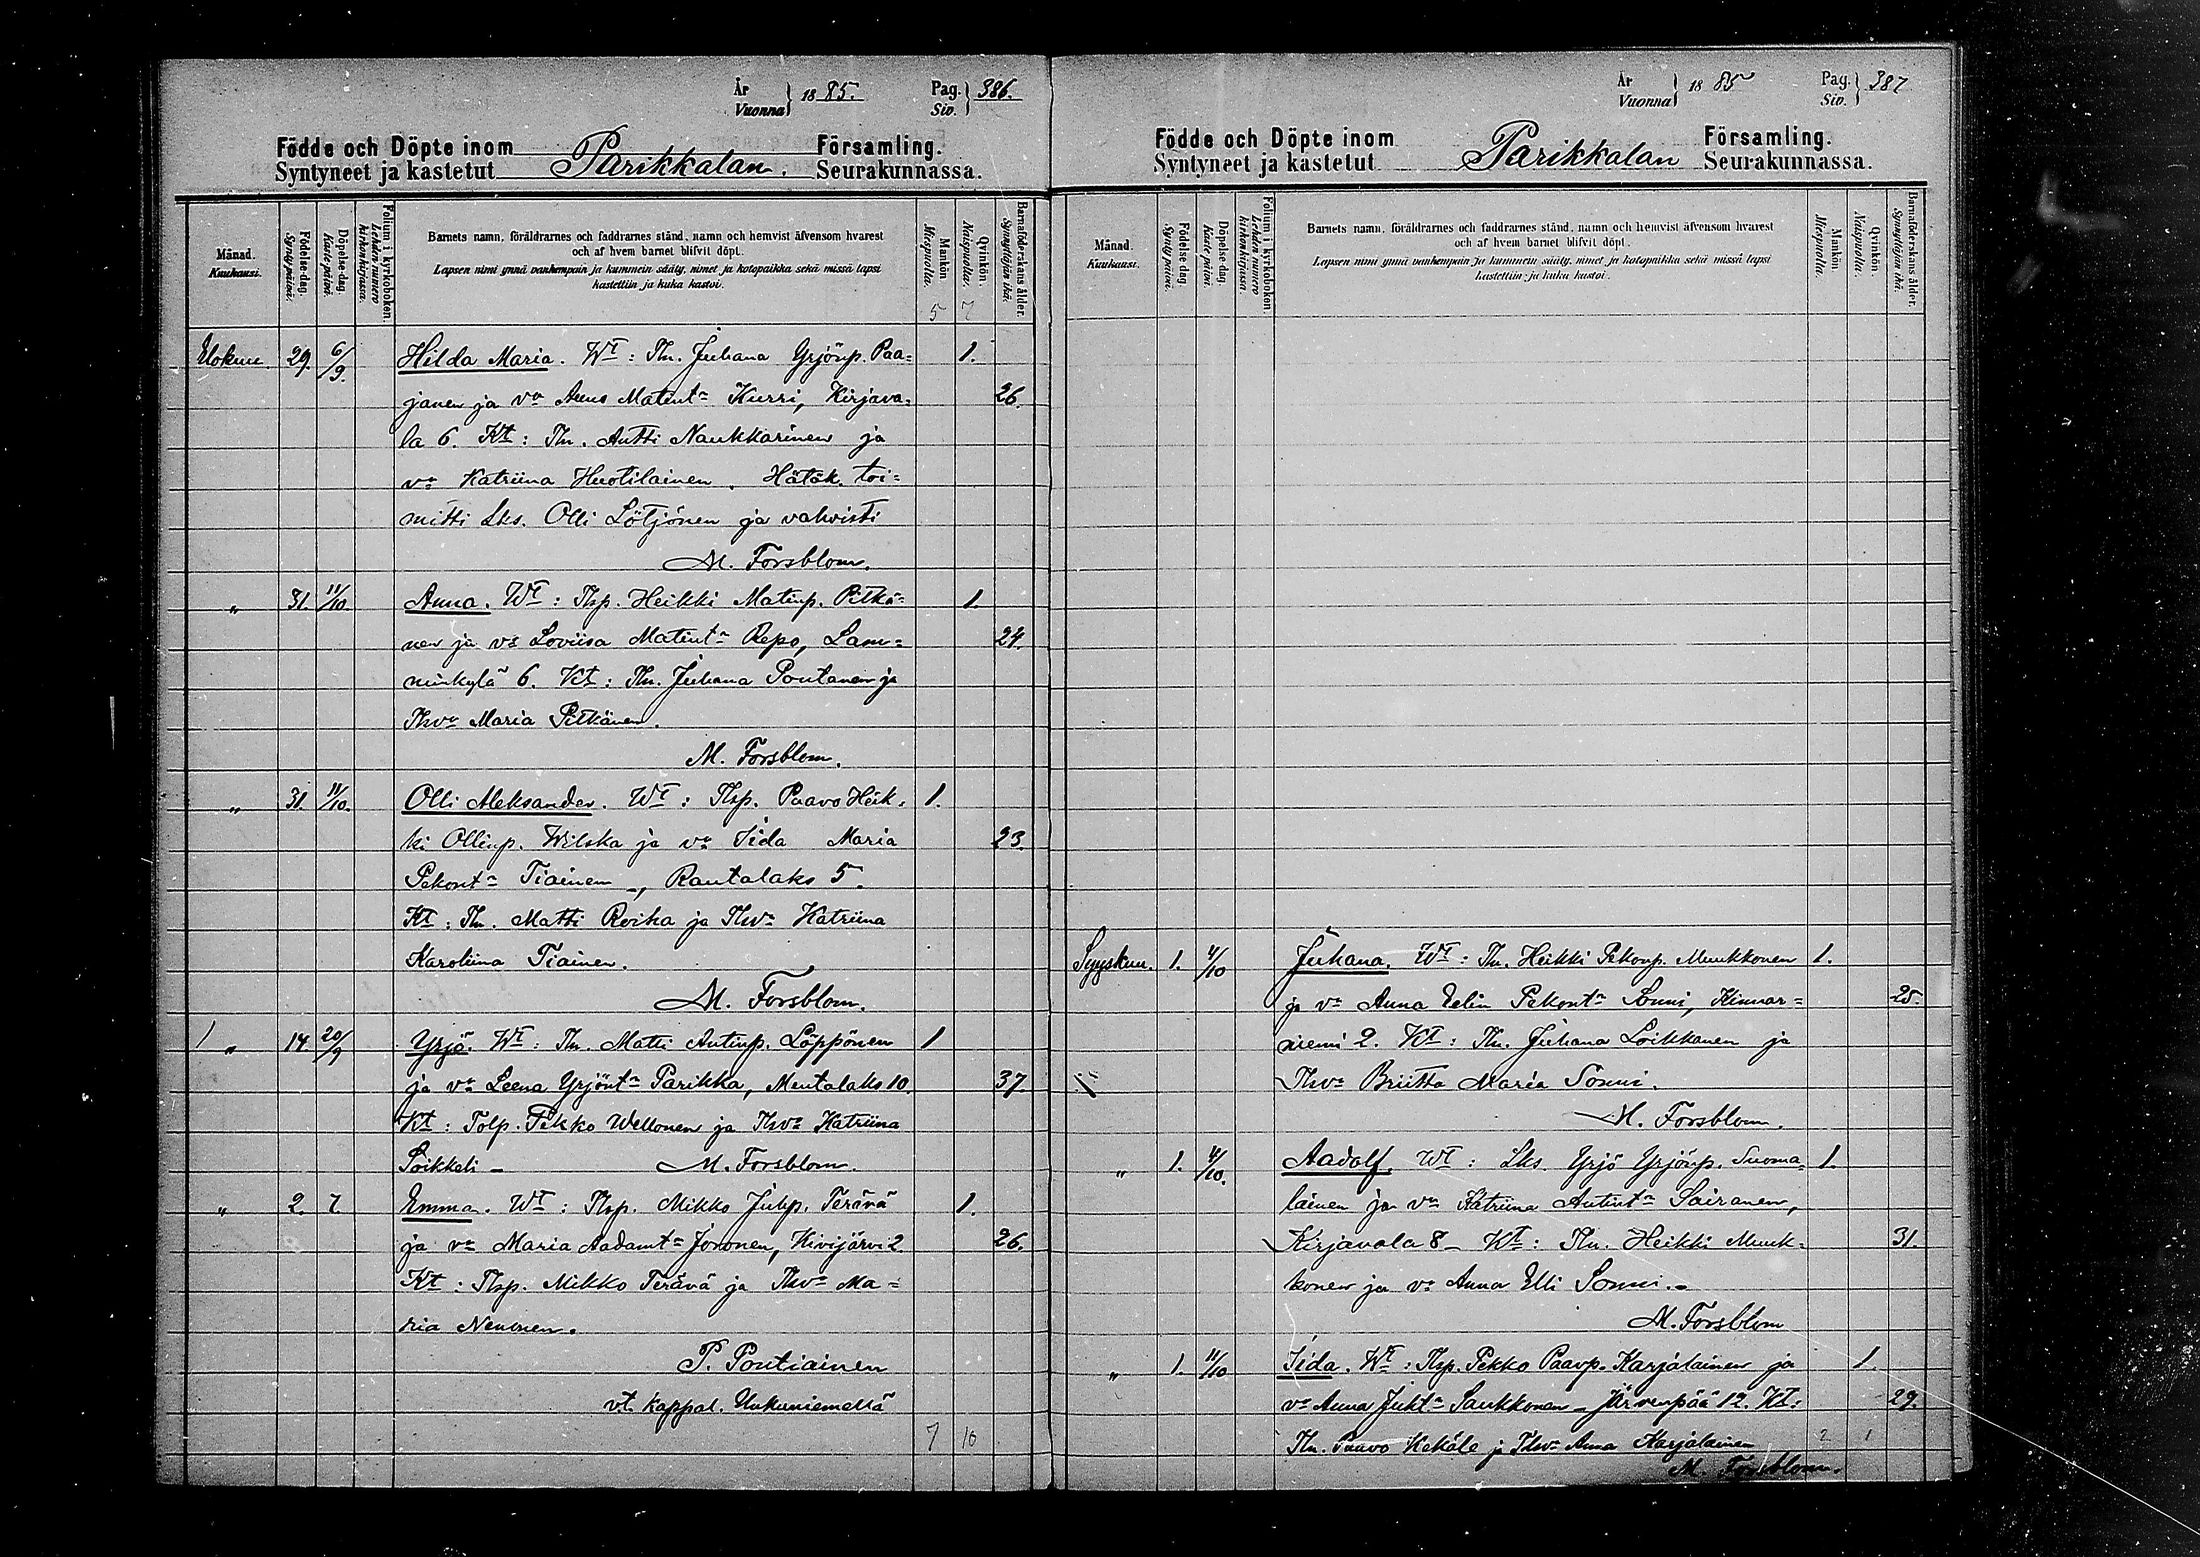 År
Vuonna } 1885. Pag.
Siv. } 386.
Födde och Döpte inom
Syntyneet ja kastetut Parikkalan. Församling.
Seurakunnassa.
Månad.
Kuukausi.
Födelse-dag.
Syntypäivä.
Döpelse-dag.
Kaste päivä.
Folium i kyrkoboken.
Lehden numero kirkonkirjassa.
Barnets namn, föräldrarnes och faddrarnes stånd, namn och hemvist äfvensom hvarest
och af hvem barnet blifvit döpt.
Lapsen nimi ynnä vanhempain ja kummein sääty, nimet ja kotopaikka sekä missä lapsi
kastettiin ja kuka kastoi.
Mankön.
Miespuolta.
Qvinkön.
Naispuolta.
Barnaföderskans ålder.
Synnyttäjän ikä.
5 7
Elokuu. 29. 6/9. Hilda Maria. Wt: Tln. Juhana Yrjönp. Paa= 1.
janen ja va Anna Matint. Kurri, Kirjava= 26.
la 6. Kt: Tln. Antti Naukkarinen ja
va Katriina Huotilainen. Hätäk. toi=
mitti Lks. Olli Lötjönen ja vahvisti
M. Forsblom.
" 31. 11/10. Anna. Wt: Tlsp. Heikki Matinp. Pitkä= 1.
nen ja va Loviisa Matint. Repo, Lam= 24.
minkylä 6. Kt: Tln. Juhana Pontanen ja
Tlwa Maria Pitkänen.
M. Forsblom.
" 31. 11/10. Olli Aleksander. Wt: Tlsp. Paavo Heik= 1.
ki Ollinp. Wilska ja va Iida Maria 23.
Pekont. Tiainen, Rautalaks 5.
Kt: Tln. Matti Roika ja Tlwa Katriina
Karoliina Tiainen.
M. Forsblom.
" 14 20/9 Yrjö. Wt: Tln. Matti Antinp. Löppönen 1
ja va Leena Yrjönt. Parikka, Mentalaks 10. 37.
Kt: Tolp. Pekko Wellonen ja Tlwa Katriina
Soikkeli – M. Forsblom.
" 2. 7. Emma. Wt: Tlsp. Mikko Juhp. Terävä 1.
ja va Maria Aadamt. Jononen, Kivijärvi 2 26.
Kt: Tlsp. Mikko Terävä ja Tlwa Ma=
ria Nenonen.
P. Pontiainen
vt. kappal. Uukuniemellä
7 10
År
Vuonna } 1885 Pag.
Siv. } 387
Födde och Döpte inom
Syntyneet ja kastetut Parikkalan Församling.
Seurakunnassa.
Månad.
Kuukausi.
Födelse dag.
Syntypäivä.
Döpelse-dag.
Kaste päivä.
Folium i kyrkoboken
Lehden numero kirkonkirjassa.
Barnets namn, föräldrarnes och faddrarnes stånd, namn och hemvist äfvensom hvarest
och af hvem barnet blifvit döpt.
Lapsen nimi ynnä vanhempain ja kummein sääty, nimet ja kotopaikka sekä missä lapsi
kastettiin ja kuka kastoi.
Mankön.
Miespuolta.
Qvinkön.
Naispuolta.
Barnaföderskans ålder.
Synnyttäjän ikä.
Syyskuu. 1. 4/10 Juhana. Wt: Tln. Heikki Pekonp. Munkkonen 1.
ja va Anna Eelin Pekont. Sonni, Kinnar= 25.
niemi 2. Kt: Tln. Juhana Loikkanen ja
Tlwa Briitta Maria Sonni.
M. Forsblom.
" 1. 4/10. Aadolf. Wt: Lks. Yrjö Yrjönp. Suoma= 1.
lainen ja va Katriina Antint. Sairanen,
Kirjavala 8 – Kt: Tln. Heikki Munk= 31.
konen ja va Anna Elli Sonni. –
M. Forsblom
" 1. 11/10 Iida. Wt: Tlsp. Pekko Paavp. Karjalainen ja 1.
va Anna Juht. Saukkonen – Järvenpää 12. Kt: 29.
Tln. Paavo Kekäle ja Tlwa Anna Karjalainen 2 1
M. Forsblom.